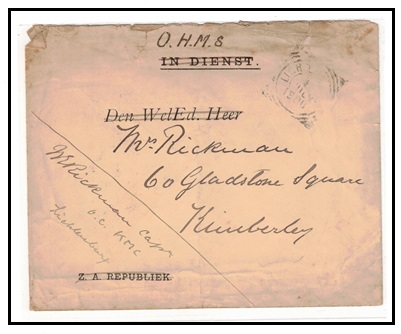 O.H.M.S
IN DIENST.
Den WelEd. Heer
Mrs Rickman
60 Gladstone Square
Kimberley
Rickman Capt
O.C. KMC
Lichtenburg
Z. A. REPUBLIEK.